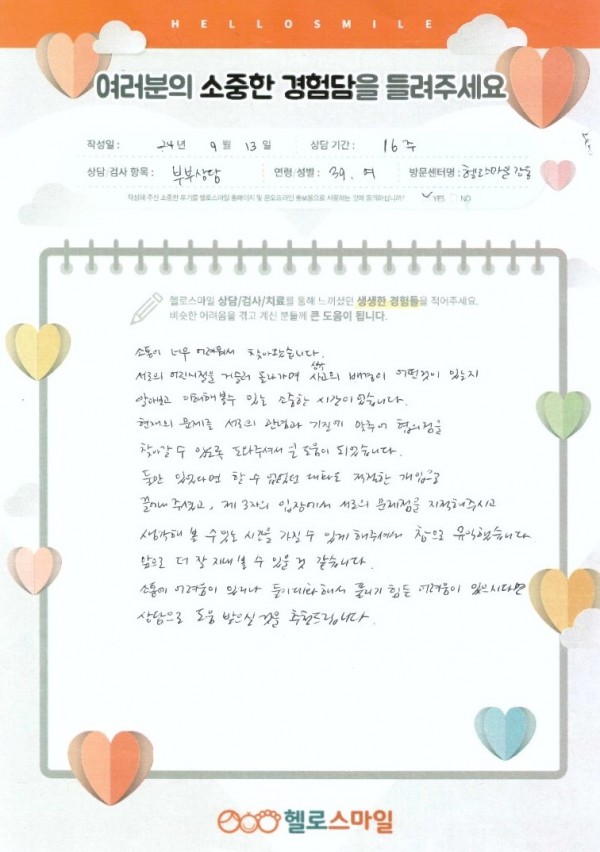 HELLOSMILE
여러분의 소중한 경험담을 들려주세요
작성일 : 24 년 9 월 13 일 상담 기간 : 16주
상담/검사 항목 : 부부상담 연령/성별 : 39. 여 방문센터명 : 헬로스마일 강동
작성해 주신 소중한 후기를 헬로스마일 홈페이지 및 온오프라인 홍보용으로 사용하는 것에 동의하십니까? ✓YES NO
헬로스마일 상담/검사/치료를 통해 느끼셨던 생생한 경험들을 적어주세요.
비슷한 어려움을 겪고 계신 분들께 큰 도움이 됩니다.
소통이 너무 어려워서 찾아왔습니다.
서로의 어린시절을 거슬러 올라가면 사고의 배경이 어떤것이 있는지
알아보고 이해해볼수 있는 소중한 시간이었습니다.
현재의 문제를 서로의 환경과 기질에 맞추어 협의점을
찾아갈 수 있도록 도와주셔서 큰 도움이 되었습니다.
둘만 있었다면 할 수 없었던 대화도 적절한 개입으로
끌어내 주셨고, 제 3자의 입장에서 서로의 문제점을 지적해주시고
생각해 볼 수 있는 시간을 가질 수 있게 해주셔서 참으로 유익했습니다
앞으로 더 잘 지내볼 수 있을 것 같습니다.
소통에 어려움이 있거나 둘이 대화해서 풀리기 힘든 어려움이 있으시다면
상담으로 도움 받으실 것을 추천드립니다.
헬로스마일